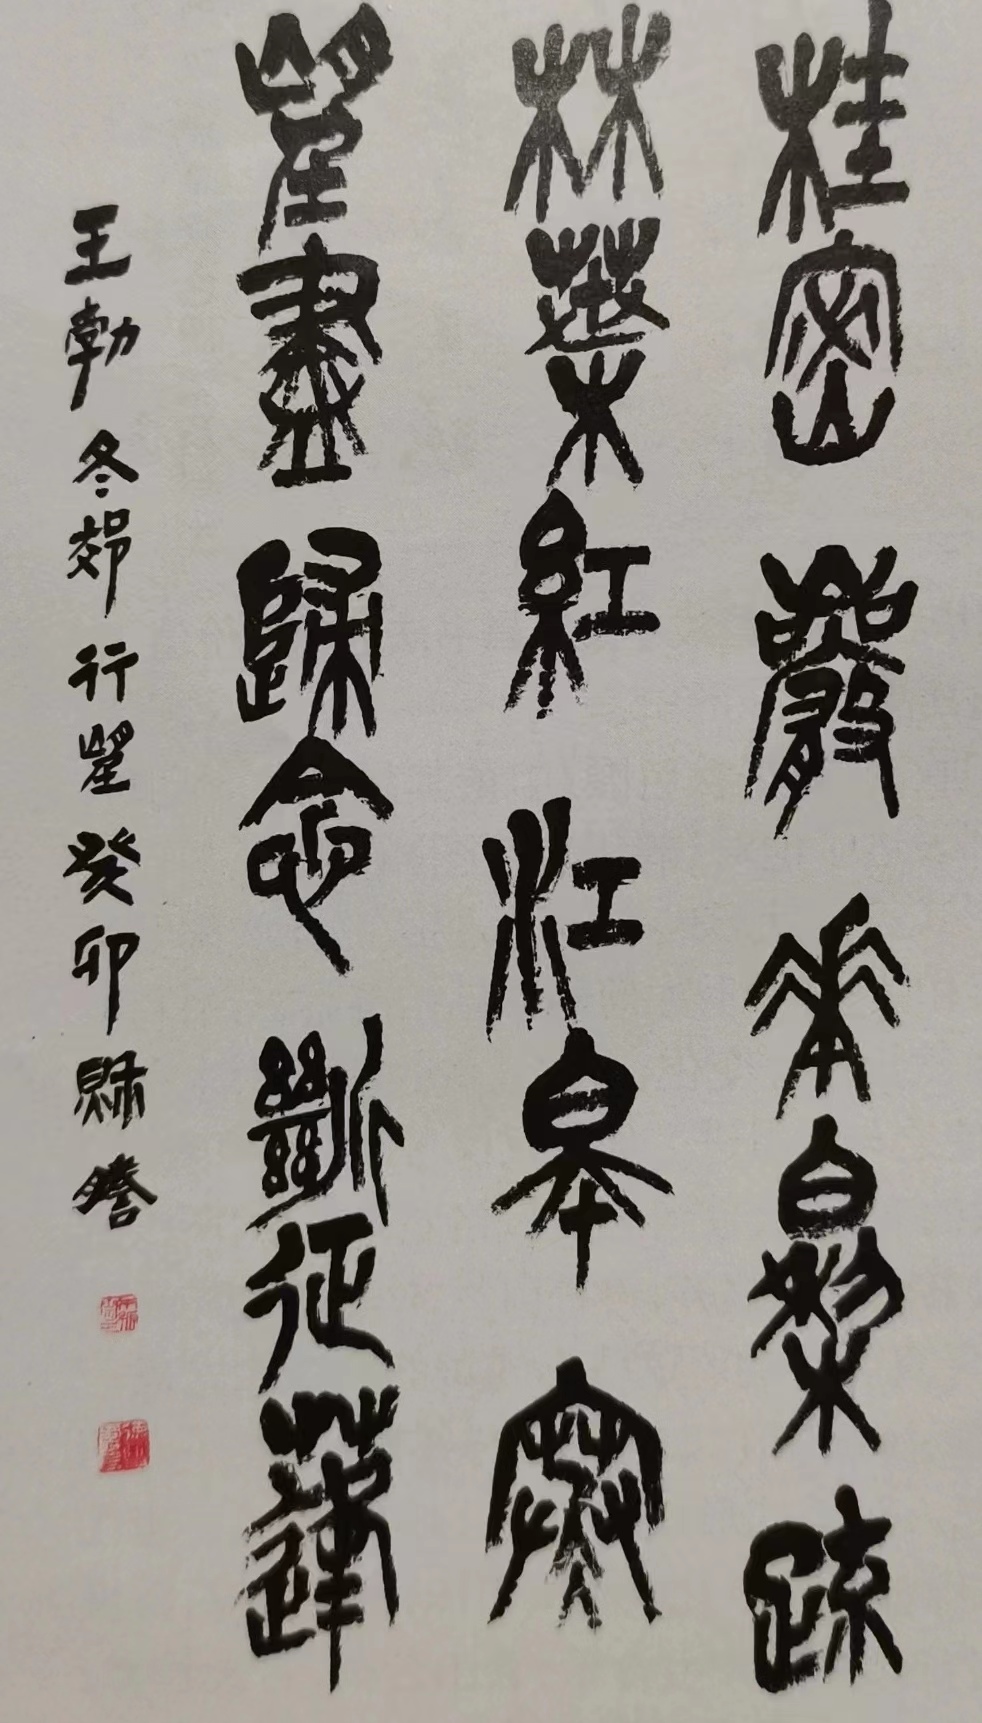 桂密巖華白梨疏
林葉紅江皋寒
望盡歸念斷征蓬
王勃冬郊行望癸卯